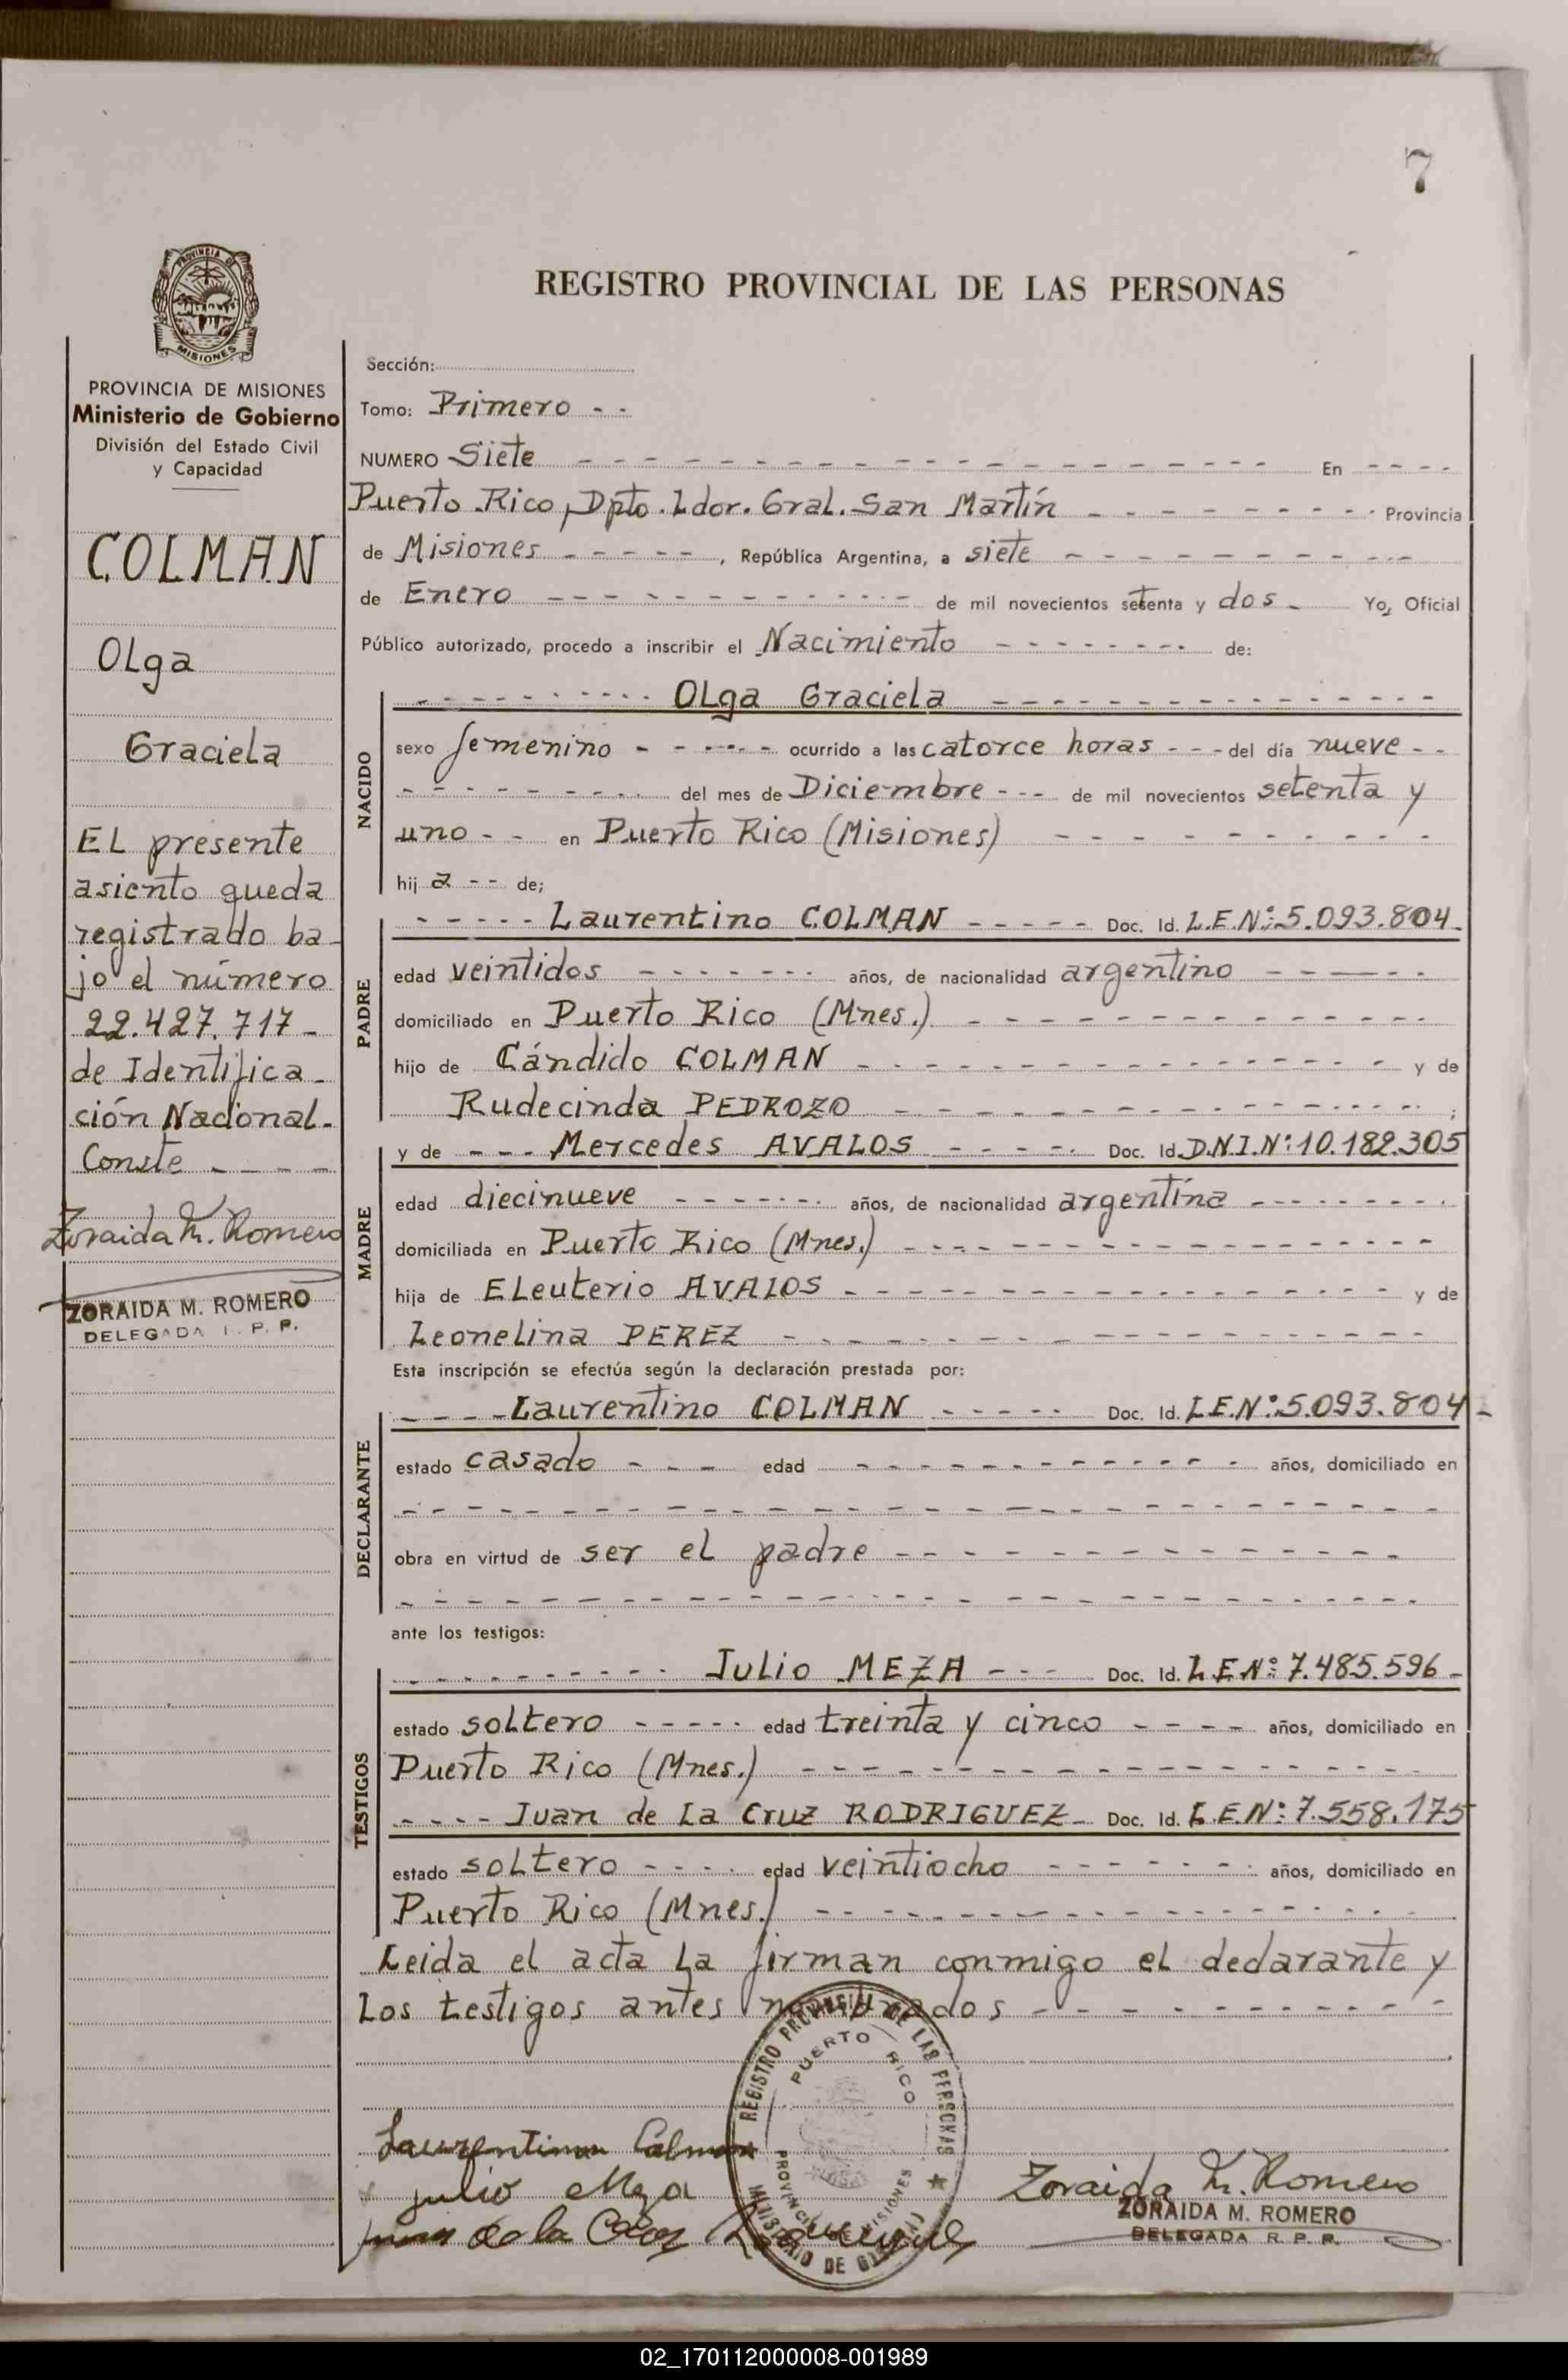 7
REGISTRO PROVINCIAL DE LAS PERSONAS
PROVINCIA DE MISIONES
MISIONES
PROVINCIA DE MISIONES
Ministerio de Gobierno
División del Estado Civil
y Capacidad
COLMAN
OLga
Graciela
EL presente
asiento queda
registrado ba-
jo el número
22.427.717-
de Identifica-
ción Nacional.-
Conste - - - -
Zoraida M. Romero
ZORAIDA M. ROMERO
DELEGADA R. P. P.
Sección:
Tomo: Primero - -
NUMERO Siete - - - En - - - -
Puerto Rico, Dpto. Ldor. Gral. San Martín - - - Provincia
de Misiones - - - - -, República Argentina, a siete - - -
de Enero - - - de mil novecientos setenta y dos - Yo, Oficial
Público autorizado, procedo a inscribir el Nacimiento - - - de:
NACIDO
- - - OLga Graciela - - -
sexo femenino - - - ocurrido a las catorce horas - - - del día nueve - -
- - - del mes de Diciembre - - - de mil novecientos setenta y
uno - - en Puerto Rico (Misiones) - - -
hij a - - de;
PADRE
- - - - - Laurentino COLMAN - - - - - Doc. Id. L.E.Nº: 5.093.804-
edad veintidos - - - años, de nacionalidad argentino - - -
domiciliado en Puerto Rico (Mnes.) - - -
hijo de Cándido COLMAN - - - y de
Rudecinda PEDROZO - - - ;
MADRE
y de - - - Mercedes AVALOS - - - - - Doc. Id. D.N.I.Nº: 10.182.305
edad diecinueve - - - años, de nacionalidad argentina - - -
domiciliada en Puerto Rico (Mnes.) - - -
hija de ELeuterio AVALOS - - - y de
Leonelina PEREZ - - -
Esta inscripción se efectúa según la declaración prestada por:
DECLARANTE
- - - - Laurentino COLMAN - - - - - Doc. Id. L.E.Nº: 5.093.804-
estado casado - - - edad - - - años, domiciliado en
- - -
obra en virtud de ser el padre - - -
- - -
ante los testigos:
TESTIGOS
- - - Julio MEZA - - - Doc. Id. L.E.Nº: 7.485.596-
estado soltero - - - - - edad treinta y cinco - - - - años, domiciliado en
Puerto Rico (Mnes.) - - -
- - - - Juan de La Cruz RODRIGUEZ - Doc. Id. L.E.Nº: 7.558.175
estado soltero - - - - edad veintiocho - - - años, domiciliado en
Puerto Rico (Mnes.) - - -
Leida el acta La firman conmigo el declarante y
Los testigos antes nombrados - - -
REGISTRO PROVINCIAL DE LAS PERSONAS
PUERTO RICO
PROVINCIA DE MISIONES
MINISTERIO DE GOBIERNO
Laurentino Colman
julio Meza
juan de la Cruz Rodriguez
Zoraida M. Romero
ZORAIDA M. ROMERO
DELEGADA R. P. P.
02_170112000008-001989